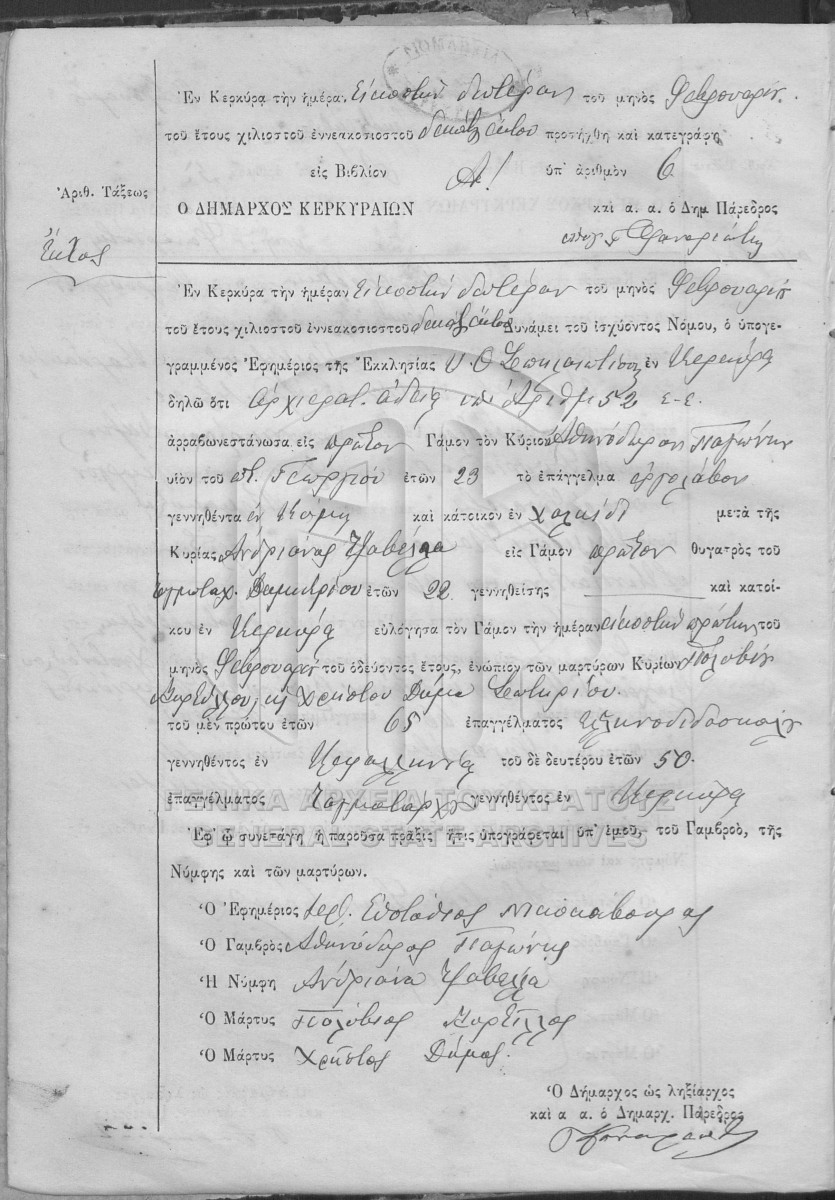 Ἐν Κερκύρᾳ τὴν ἡμέραν Εἰκοστὴν δευτέραν τοῦ μηνὸς Φεβρουαρίου
τοῦ ἔτους χιλιοστοῦ ἐννεακοσιοστοῦ δεκάτου ἕκτου προσήχθη καὶ κατεγράφη
εἰς Βιβλίον Α! ὑπ' ἀριθμὸν 6
Ἀριθ. Τάξεως
Ὁ ΔΗΜΑΡΧΟΣ ΚΕΡΚΥΡΑΙΩΝ καὶ α. α. ὁ Δημ Πάρεδρος
Ἕκτος
Ἐν Κερκύρᾳ τὴν ἡμέραν Εἰκοστὴν δευτέραν τοῦ μηνὸς Φεβρουαρίου
τοῦ ἔτους χιλιοστοῦ ἐννεακοσιοστοῦ δεκάτου ἕκτου Δυνάμει τοῦ ἰσχύοντος Νόμου, ὁ ὑπογε-
γραμμένος Ἐφημέριος τῆς Ἐκκλησίας Υ. Θ. Σπηλαιωτίσσης ἐν Κερκύρᾳ
δηλῶ ὅτι ἀρχιερατ. ἀδείᾳ ὑπ' ἀριθμ 52 ἐ-ἔ.
ἀρραβωνεστάνωσα εἰς πρῶτον Γάμον τὸν Κύριον Ἀθηνόδωρον Παγώνην
υἱὸν τοῦ Γεωργίου ἐτῶν 23 τὸ ἐπάγγελμα ἐργολάβον
γεννηθέντα ἐν Κύμῃ καὶ κάτοικον ἐν Χαλκίδι μετὰ τῆς
Κυρίας Ἀνδριάνας Τζαβέλλα εἰς Γάμον πρῶτον θυγατρὸς τοῦ
Ταγματαρχ. Δημητρίου ἐτῶν 22 γεννηθείσης καὶ κατοί-
κου ἐν Κερκύρᾳ εὐλόγησα τὸν Γάμον τὴν ἡμέραν εἰκοστὴν πρώτην τοῦ
μηνὸς Φεβρουαρίου τοῦ ὁδεύοντος ἔτους, ἐνώπιον τῶν μαρτύρων Κυρίων Πολυβίου
Κυρίλλου, κ Χρήστου Δήμα Σωτηρίου.
τοῦ μὲν πρώτου ἐτῶν 65 ἐπαγγέλματος Ἑλληνοδιδασκάλου
γεννηθέντος ἐν Κεφαλληνίᾳ τοῦ δὲ δευτέρου ἐτῶν 50.
ἐπαγγέλματος Ταγματάρχου γεννηθέντος ἐν Κερκύρᾳ
ΓΕΝΙΚΑ ΑΡΧΕΙΑ ΤΟΥ ΚΡΑΤΟΥΣ
GENERAL STATE ARCHIVES
Ἐφ' ᾧ συνετάγη ἡ παροῦσα πρᾶξις ἥτις ὑπογράφεται ὑπ' ἐμοῦ, τοῦ Γαμβροῦ, τῆς
Νύμφης καὶ τῶν μαρτύρων.
Ὁ Ἐφημέριος Ἱερ. Εὐστάθιος
Ὁ Γαμβρὸς Ἀθηνόδωρος Παγώνης
Ἡ Νύμφη Ἀνδριάνα Τζαβέλλα
Ὁ Μάρτυς Πολύβιος Κύριλλος
Ὁ Μάρτυς Χρῆστος Δήμας.
Ὁ Δήμαρχος ὡς ληξίαρχος
καὶ α α. ὁ Δημαρχ. Πάρεδρος